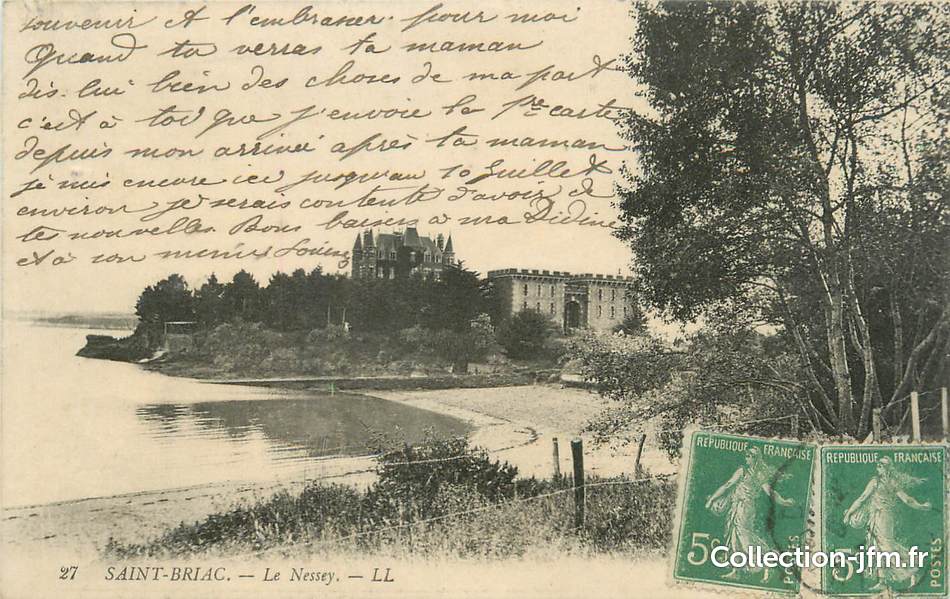 souvenir et l'embrasser pour moi
Quand tu verras ta maman
dis lui bien des choses de ma part
c'est à toi que j'envoie la 1re carte
depuis mon arrivée après ta maman
je suis encore ici jusqu'au 10 Juillet
environ je serais contente d'avoir de
tes nouvelles. Bons baisers à ma Didine
et à son
27 SAINT-BRIAC. — Le Nessey. — LL
REPUBLIQUE FRANÇAISE
5c
POSTES
REPUBLIQUE FRANÇAISE
5c
POSTES
Collection-jfm.fr